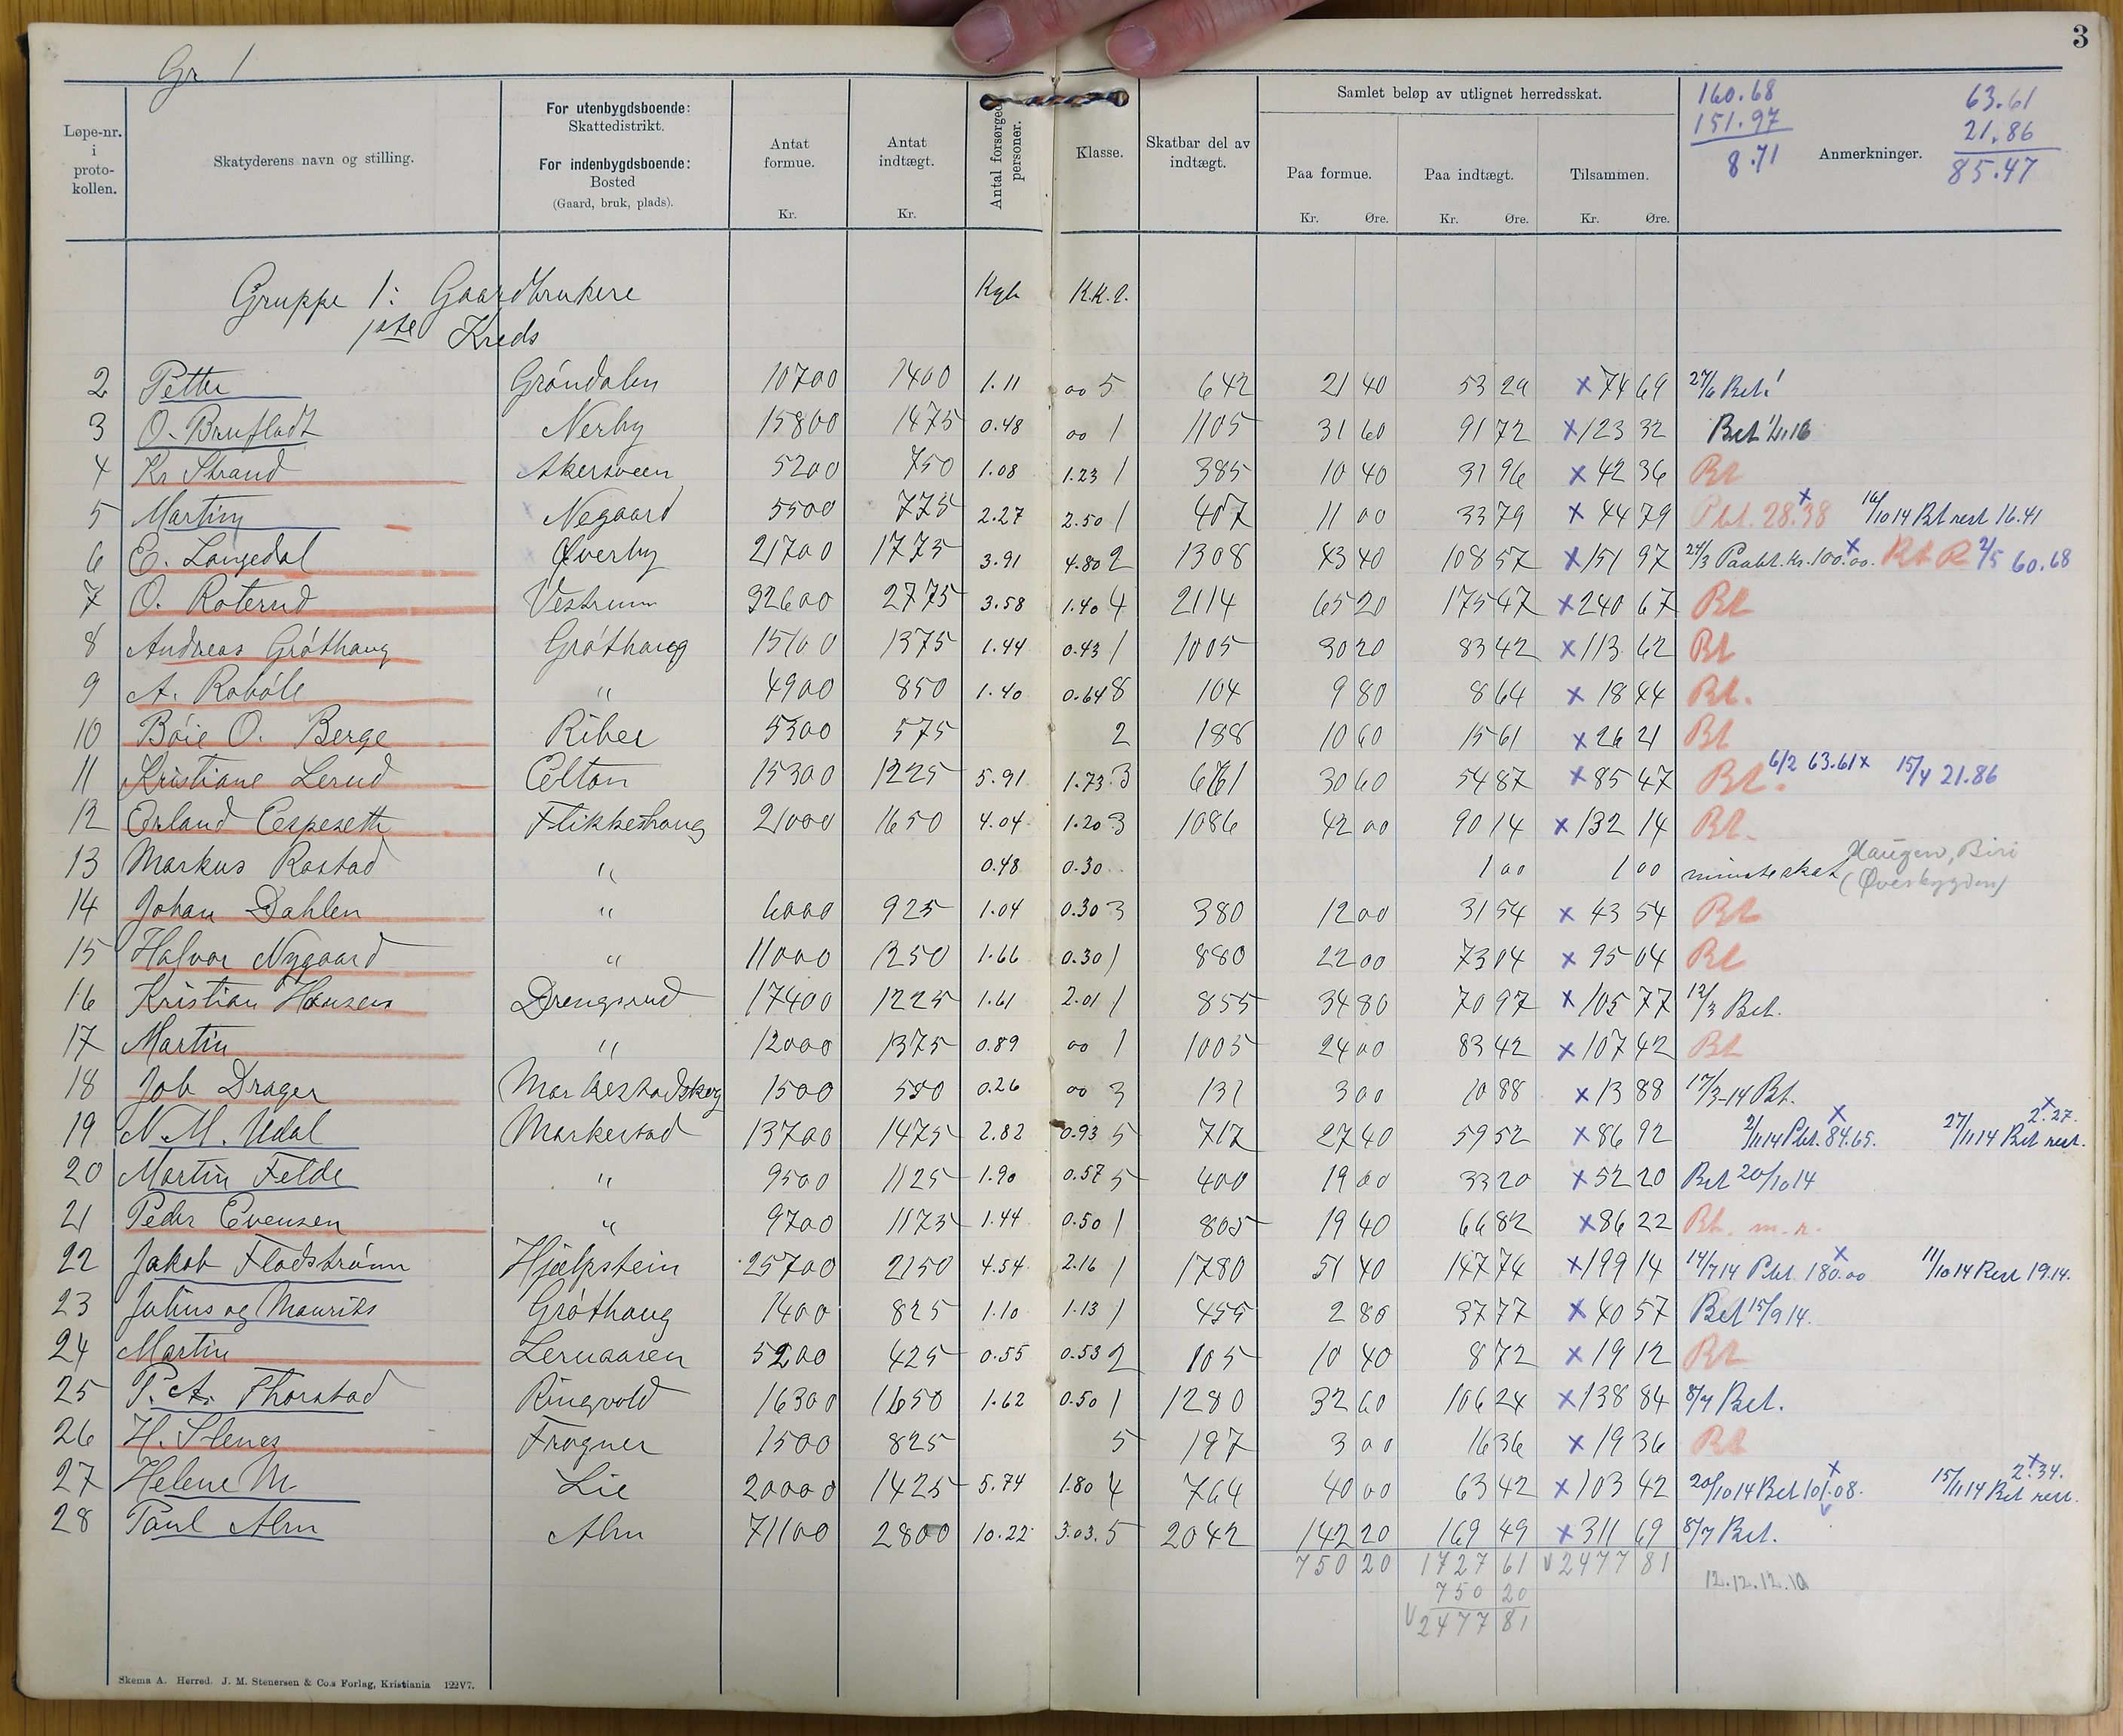 Gr 1
3
160.68
151.97
8.71
63.61
21.86
85.47
Løpe-nr. i proto-kollen.
Skatyderens navn og stilling.
For utenbygdsboende: Skattedistrikt. For indenbygdsboende: Bosted (Gaard, bruk, plads).
Antat formue. Kr.
Antat indtægt. Kr.
Antal forsørgede personer.
Klasse.
Skatbar del av indtægt.
Samlet beløp av utlignet herredsskat.
Paa formue. Kr. Øre.
Paa indtægt. Kr. Øre.
Tilsammen. Kr. Øre.
Anmerkninger.
Gruppe 1: Gaardbrukere K.K.
1ste Kreds
2 Petter Gröndalen 10700 1400 1.11 00 5 642 21 40 53 29 x 74 69 27/6 Bet!
3 O. Brufladt Nerby 15800 1475 0.48 00 1 1105 31 60 91 72 x 123 32 Bet
4 Kr Strand Akersveen 5200 750 1.08 1.23 1 385 10 40 31 96 x 42 36 Bt
5 Martin Negaard 5500 775 2.27 2.50 1 407 11 00 33 79 x 44 79 Pbt. 28.38 x 16/10 14 Bt rest 16.41
6 E. Langedal Øverby 21700 1775 3.91 4.80 2 1308 43 40 108 57 x 151 97 24/3 Paabt. Kr. 100.00. x Bt R 2/5 60.68
7 O. Roterud Vestrum 32600 2775 3.58 1.40 4 2114 65 20 175 47 x 240 67 Bt
8 Andreas Gröthaug Gröthaug 15100 1375 1.44 0.43 1 1005 30 20 83 42 x 113 62 Bt
9 A. Roböle " 4900 850 1.40 0.64 8 104 9 80 8 64 x 18 44 Bt.
10 Böie O. Berge Riber 5300 575 2 188 10 60 15 61 x 26 21 Bt
11 Kristiane Lerud Celton 15300 1225 5.91 1.73 3 661 30 60 54 87 x 85 47 Bt. 6/2 63.61 x 15/4 21.86
12 Erland Espeseth Flikkeshaug 21000 1650 4.04 1.20 3 1086 42 00 90 14 x 132 14 Bt.
13 Markus Rastad " 0.48 0.30 1 00 1 00 minsteskat Haugen, Biri
(Øverbygden)
14 Johan Dahlen " 6000 925 1.04 0.30 3 380 12 00 31 54 x 43 54 Bt
15 Halvor Nygaard " 11000 1250 1.66 0.30 1 880 22 00 73 04 x 95 04 Bt
16 Kristian Hansen Drengsrud 17400 1225 1.61 2.01 1 855 34 80 70 97 x 105 77 12/3 Bet.
17 Martin " 12000 1375 0.89 00 1 1005 24 00 83 42 x 107 42 Bt
18 Job Drager Markestadskog 1500 550 0.26 00 3 131 3 00 10 88 x 13 88 17/3-14 Bt.
19 N. M. Udal Markestad 13700 1475 2.82 0.93 5 717 27 40 59 52 x 86 92 2/11 14 Pbt. 84.65. x 27/11 14 Bet rest. 2.27. x
20 Martin Felde " 9500 1125 1.90 0.57 5 400 19 00 33 20 x 52 20 Bet 20/10 14
21 Peder Evensen " 9700 1175 1.44 0.50 1 805 19 40 66 82 x 86 22 Bt. m. r.
22 Jakob Flodström Hjelpstein 25700 2150 4.54 2.16 1 1780 51 40 147 74 x 199 14 14/7 14 Pbt. 180.00 x 11/10 14 Rest 19.14.
23 Julius og Maurits Gröthaug 1400 825 1.10 1.13 1 455 2 80 37 77 x 40 57 Bet 15/9 14.
24 Martin Leruaasen 5200 425 0.55 0.53 2 105 10 40 8 72 x 19 12 Bt
25 P. A. Thorstad Ringvold 16300 1650 1.62 0.50 1 1280 32 60 106 24 x 138 84 8/7 Bet.
26 H. Slengs Frogner 1500 825 5 197 3 00 16 36 x 19 36 Bt
27 Helene M Lie 20000 1425 5.74 1.80 4 764 40 00 63 42 x 103 42 20/10 14 Bet 101.08. x 15/11 14 Bet rest. 2.34. x
28 Paul Alm Alm 71100 2800 10.22 3.03. 5 2042 142 20 169 49 x 311 69 8/7 Bet.
750 20 1727 61 2477 81
750 20
2477 81
12.12.12.10
Skema A. Herred. J. M. Stenersen & Co.s Forlag, Kristiania 122V7.